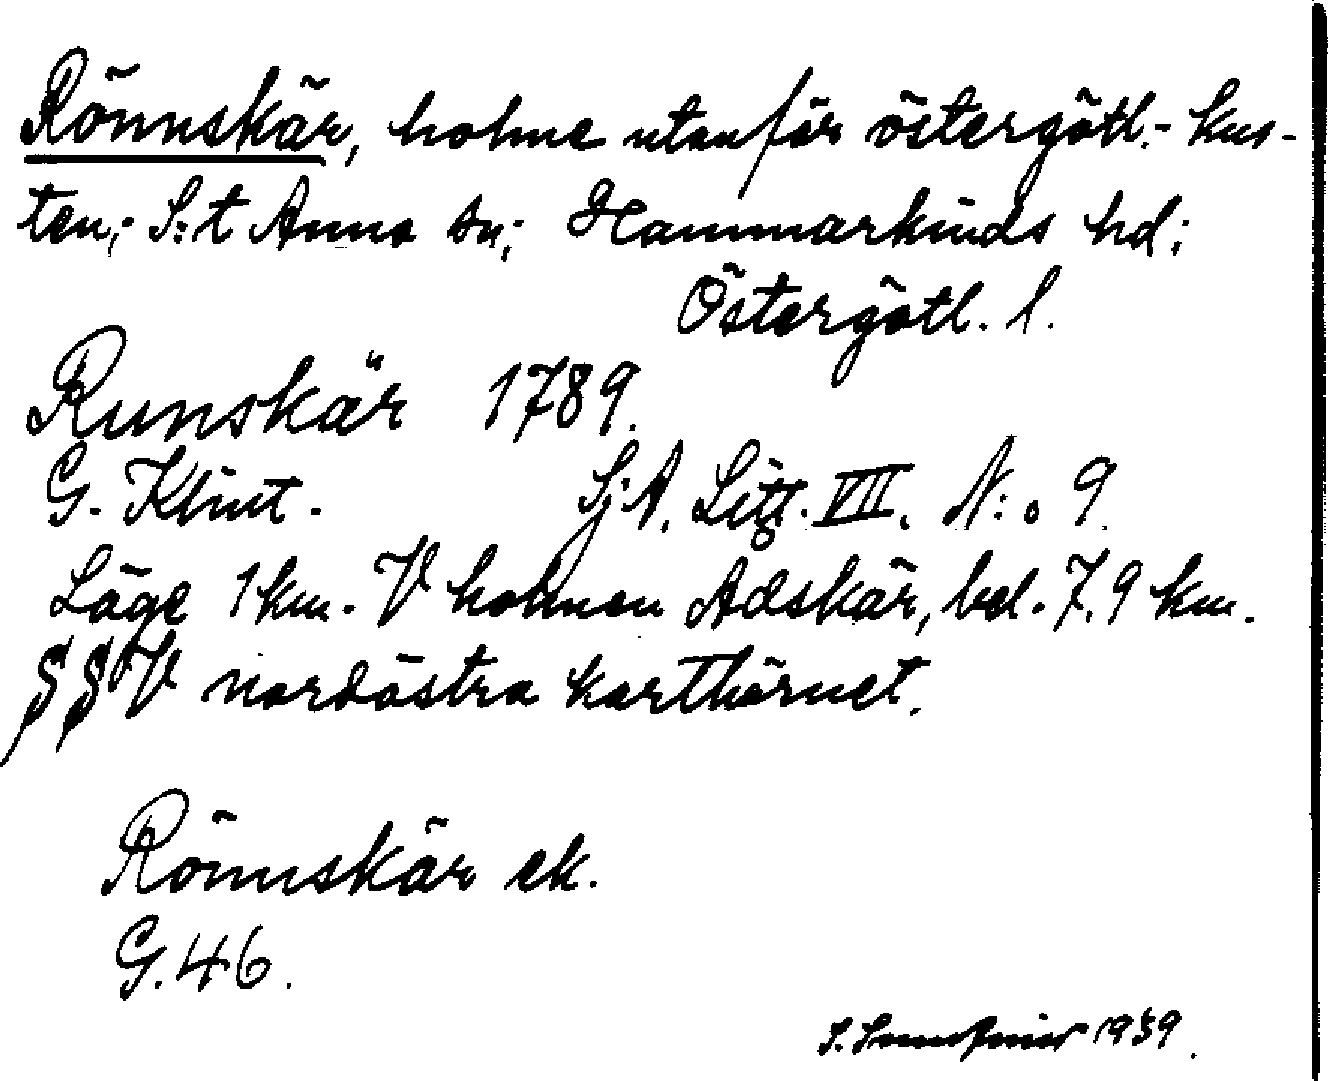 Rönnskär, holme utanför östergötl.- kus-
ten; S:t Anna sn; Hammarkinds hd;
Östergötl. l.
Runskär 1789.
G. Klint. Sj.A. Litt. VII. N:o 9.
Läge 1 km. V holmen Adskär, bel. 7,9 km.
SSV nordöstra karthörnet.
Rönnskär ek.
G.46.
S. 1939.